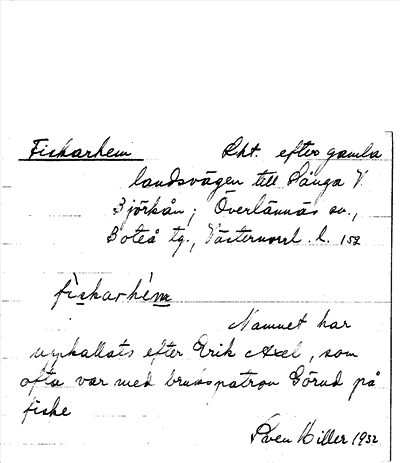 Fiskarhem Lht. efter gamla
landsvägen till Sånga V.
Björkån; Överlännäs sn.,
Boteå tg., Västernorrl. l. 152
fiskarhem
Namnet har
uppkallats efter Erik Axel, som
ofta var med brukspatron Sörud på
fiske
Sven Hiller 1932